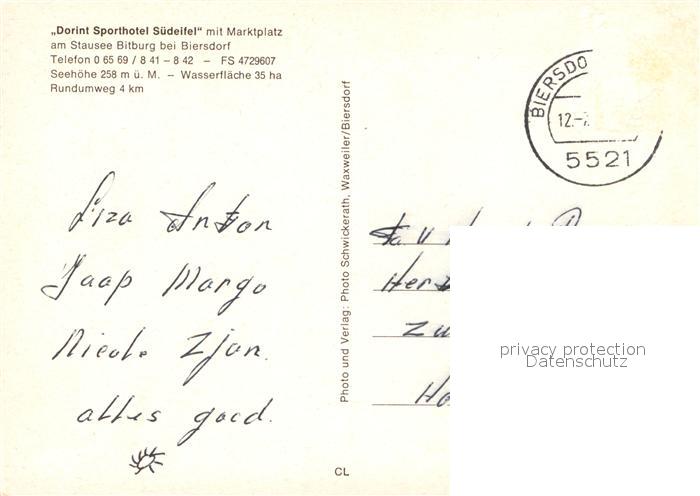 „Dorint Sporthotel Südeifel“ mit Marktplatz
am Stausee Bitburg bei Biersdorf
Telefon 0 65 69 / 8 41 – 8 42 – FS 4729607
Seehöhe 258 m ü. M. – Wasserfläche 35 ha
Rundumweg 4 km
BIERSDO
12.-
5521
Photo und Verlag: Photo Schwickerath, Waxweiler/Biersdorf
Liza Anton
Jaap Margo
Nicole Zjan.
alles goed.
Her
Zu
Ho
privacy protection
Datenschutz
CL